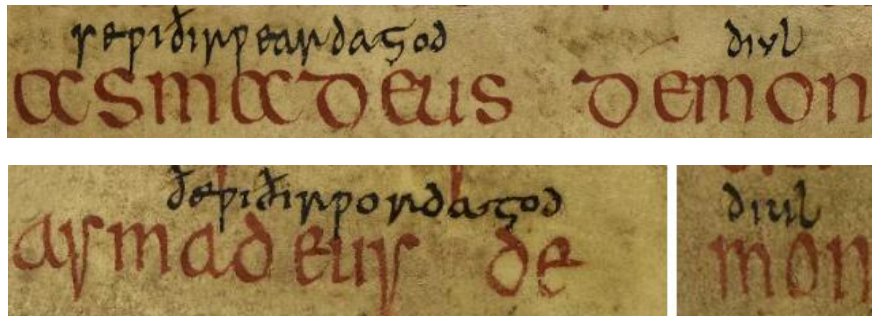 seƿiðirƿearda god diul
asmadeus demon
ðeƿiðirƿorda god diul
asmadeus de mon